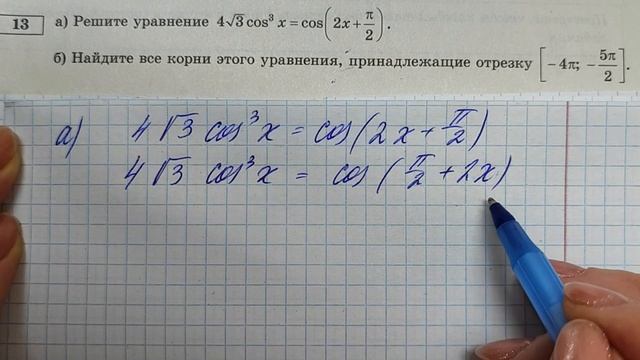 13 а) Решите уравнение 4√3 cos³ x = cos(2x + π/2).
б) Найдите все корни этого уравнения, принадлежащие отрезку [−4π; −5π/2].
а) 4√3 cos³x = cos(2x + π/2)
4√3 cos³x = cos(π/2 + 2x)